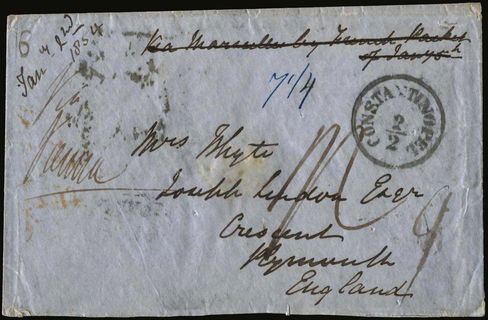 6
Jan 2nd
1854
Via Marseilles by French Packet
of Jany 5th
7 1/4
CONSTANTINOPEL
2/2
Via
Vienna
Mrs Whyte
Joseph Lindon Esqr
Crescent
Plymouth
England